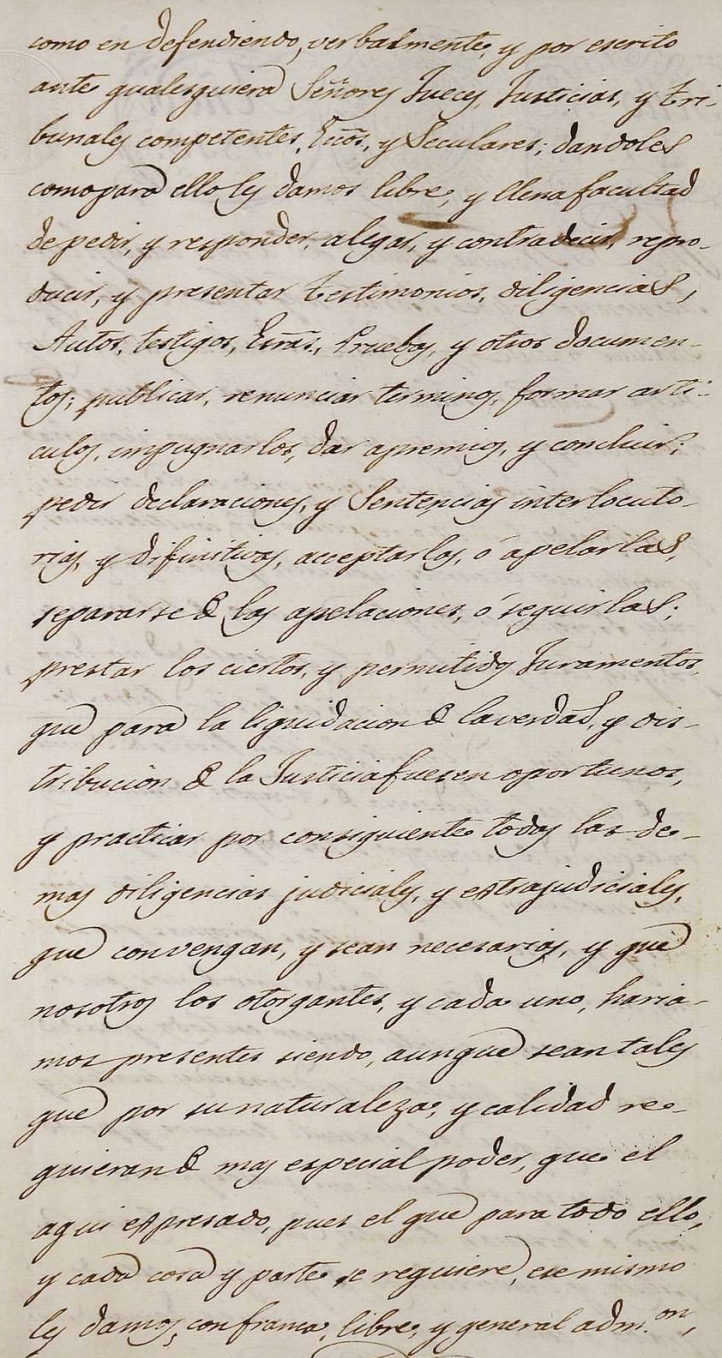 como en defendiendo, verbalmente, y por escrito
ante qualesquiera Señores Jueces, Justicias, y Tri-
bunales competentes, Ecc̃os, y Seculares; dandoles
como para ello les damos libre, y llena facultad
de pedir, y responder, alegar, y contradecir, repro-
ducir, y presentar testimonios, diligencias,
Autos, testigos, Esrãs., Pruebas, y otros documen-
tos; publicar, renunciar terminos, formar arti-
culos, impugnarlos, dar apremios, y concluir;
pedir declaraciones, y Sentencias interlocuto-
rias, y difinitivas, acceptarlas, ó apelarlas,
separarse de las apelaciones, ó seguirlas;
prestar los ciertos, y permitidos Juramentos,
que para la liquidacion de la verdad, y dis-
tribucion de la Justicia fuesen oportunos,
y practicar por consiguiente todas las de-
mas diligencias judiciales, y estrajudiciales,
que convengan, y sean necesarias, y que
nosotros los otorgantes, y cada uno, haria-
mos presentes siendo, aunque sean tales
que por su naturaleza, y calidad re-
quieran de mas especial poder, que el
aqui espresado, pues el que para todo ello,
y cada cosa y parte se requiere, ese mismo
les damos, con franca, libre, y general adm.on,